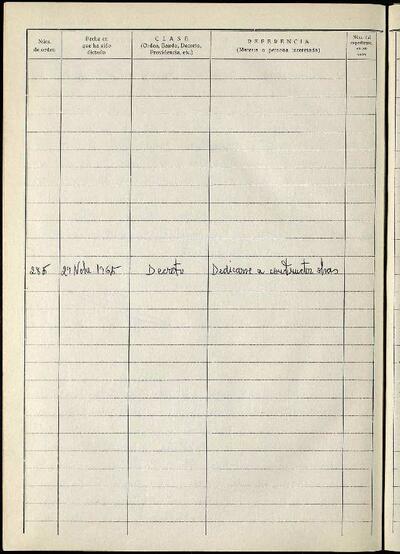 Núm. de orden
Fecha en que ha sido dictado
CLASE
(Orden, Bando, Decreto, Providencia, etc.)
REFERENCIA
(Materia o persona interesada)
Núm. del expediente,
285 29 Nobe 1965 Decreto Dedicarse a constructor obras